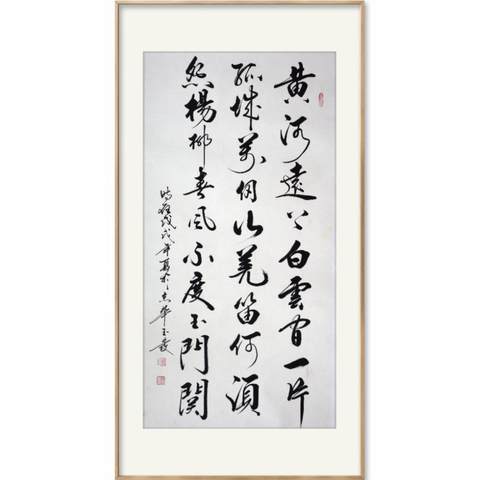 黃河遠上白雲間一片
孤城萬仞山羌笛何須
怨楊柳春風不度玉門關
戊戌年夏於京華